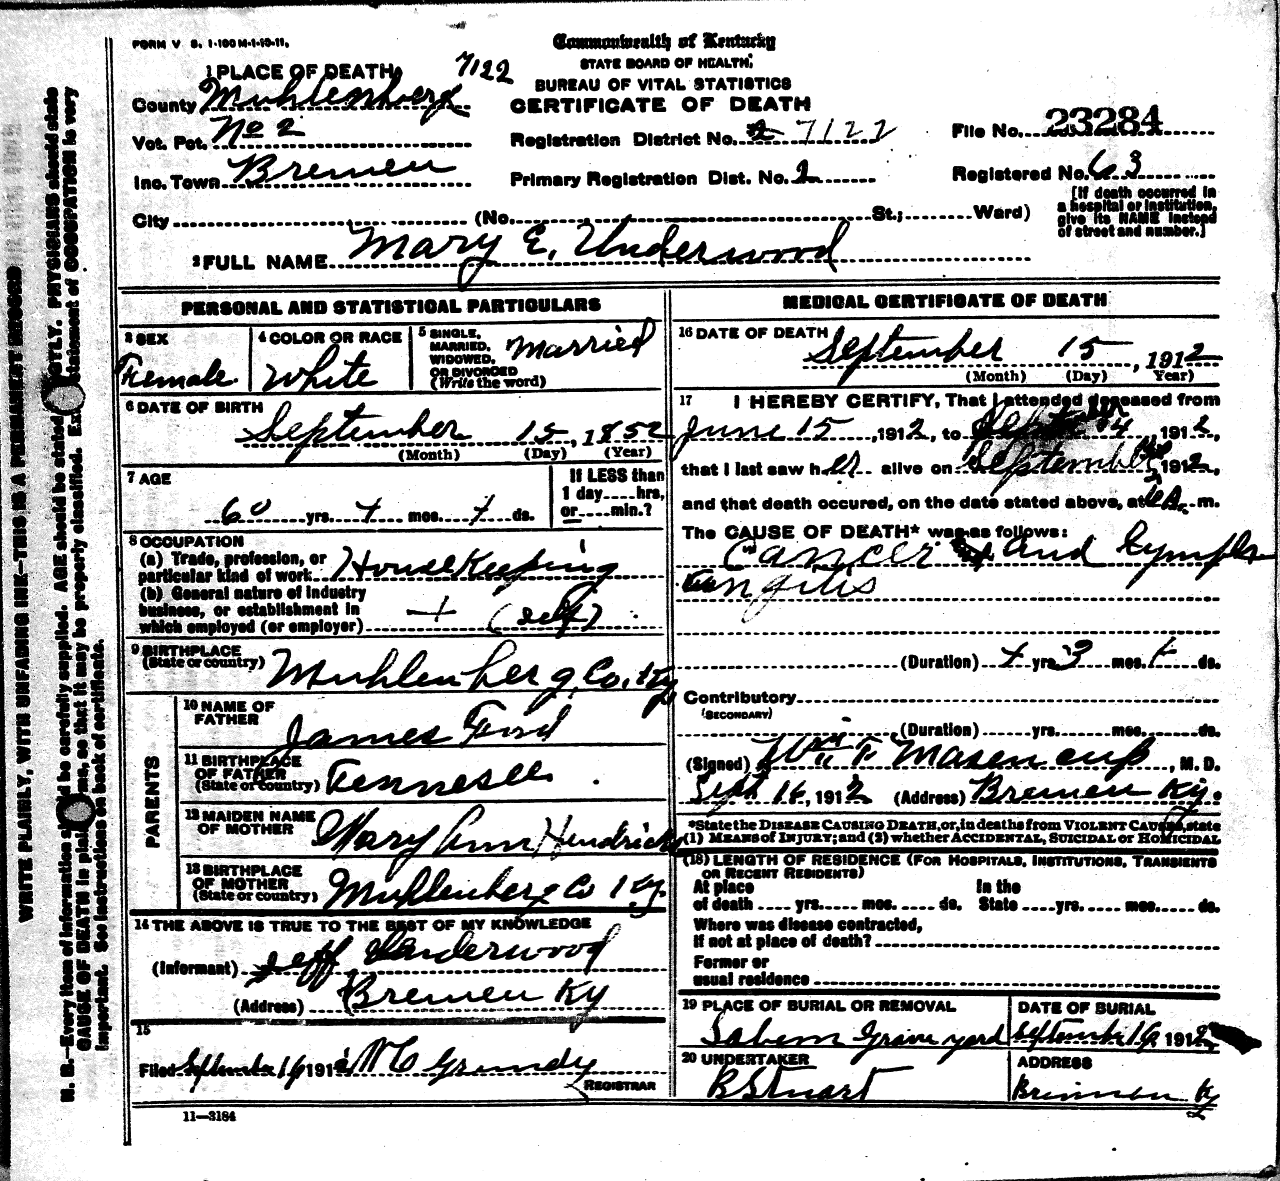 FORM V S. 1-100 M-1-10-11.
Commonwealth of Kentucky
STATE BOARD OF HEALTH.
BUREAU OF VITAL STATISTICS
CERTIFICATE OF DEATH
1 PLACE OF DEATH 7122
County Muhlenberg
Vot. Pct. No 2
Inc. Town Bremen
Registration District No. 7122
Primary Registration Dist. No. 2
File No. 23284
Registered No. 63
[If death occurred in
a hospital or institution,
give its NAME instead
of street and number.]
City (No. St.; Ward)
2 FULL NAME Mary E. Underwood
PERSONAL AND STATISTICAL PARTICULARS
3 SEX Female
4 COLOR OR RACE White
5 SINGLE, MARRIED, WIDOWED, OR DIVORCED (Write the word) Married
6 DATE OF BIRTH
September 15, 1852
(Month) (Day) (Year)
7 AGE
60 yrs. + mos. + ds.
If LESS than
1 day hrs,
or min.?
8 OCCUPATION
(a) Trade, profession, or
particular kind of work House Keeping
(b) General nature of industry
business, or establishment in
which employed (or employer) + (self)
9 BIRTHPLACE
(State or country) Muhlenberg, Co, Ky
PARENTS
10 NAME OF
FATHER James Ford
11 BIRTHPLACE
OF FATHER
(State or country) Tennessee
12 MAIDEN NAME
OF MOTHER Mary Ann Hendricks
13 BIRTHPLACE
OF MOTHER
(State or country) Muhlenberg Co Ky.
14 THE ABOVE IS TRUE TO THE BEST OF MY KNOWLEDGE
(Informant) Jeff Underwood
(Address) Bremen Ky
15
Filed September 16 1912 W C Grundy
REGISTRAR
11—3184
MEDICAL CERTIFICATE OF DEATH
16 DATE OF DEATH
September 15, 1912
(Month) (Day) Year)
17 I HEREBY CERTIFY, That I attended deceased from
June 15, 1912, to September 14 1912,
that I last saw her alive on September 1912,
and that death occured, on the date stated above, at m.
The CAUSE OF DEATH* was as follows:
Cancer and Lympha
ngitis
(Duration) + yrs. 3 mos. + ds.
Contributory
(SECONDARY)
(Duration) yrs. mos. ds.
(Signed) Wm T Masencup, M. D.
Sept 16, 1912 (Address) Bremen Ky.
*State the DISEASE CAUSING DEATH, or, in deaths from VIOLENT CAUSES, state
(1) MEANS OF INJURY; and (2) whether ACCIDENTAL, SUICIDAL or HOMICIDAL
(18) LENGTH OF RESIDENCE (FOR HOSPITALS, INSTITUTIONS, TRANSIENTS
OR RECENT RESIDENTS)
At place In the
of death yrs. mos. ds. State yrs. mos. ds.
Where was disease contracted,
If not at place of death?
Former or
usual residence
19 PLACE OF BURIAL OR REMOVAL
Salem Grave yard
DATE OF BURIAL
September 16, 1912
20 UNDERTAKER
B Stuart
ADDRESS
Bremen Ky
WRITE PLAINLY, WITH UNFADING INK—THIS IS A PERMANENT RECORD
N. B.—Every item of information should be carefully supplied. AGE should be stated EXACTLY. PHYSICIANS should state
CAUSE OF DEATH in plain terms, so that it may be properly classified. Exact statement of OCCUPATION is very
important. See instructions on back of certificate.